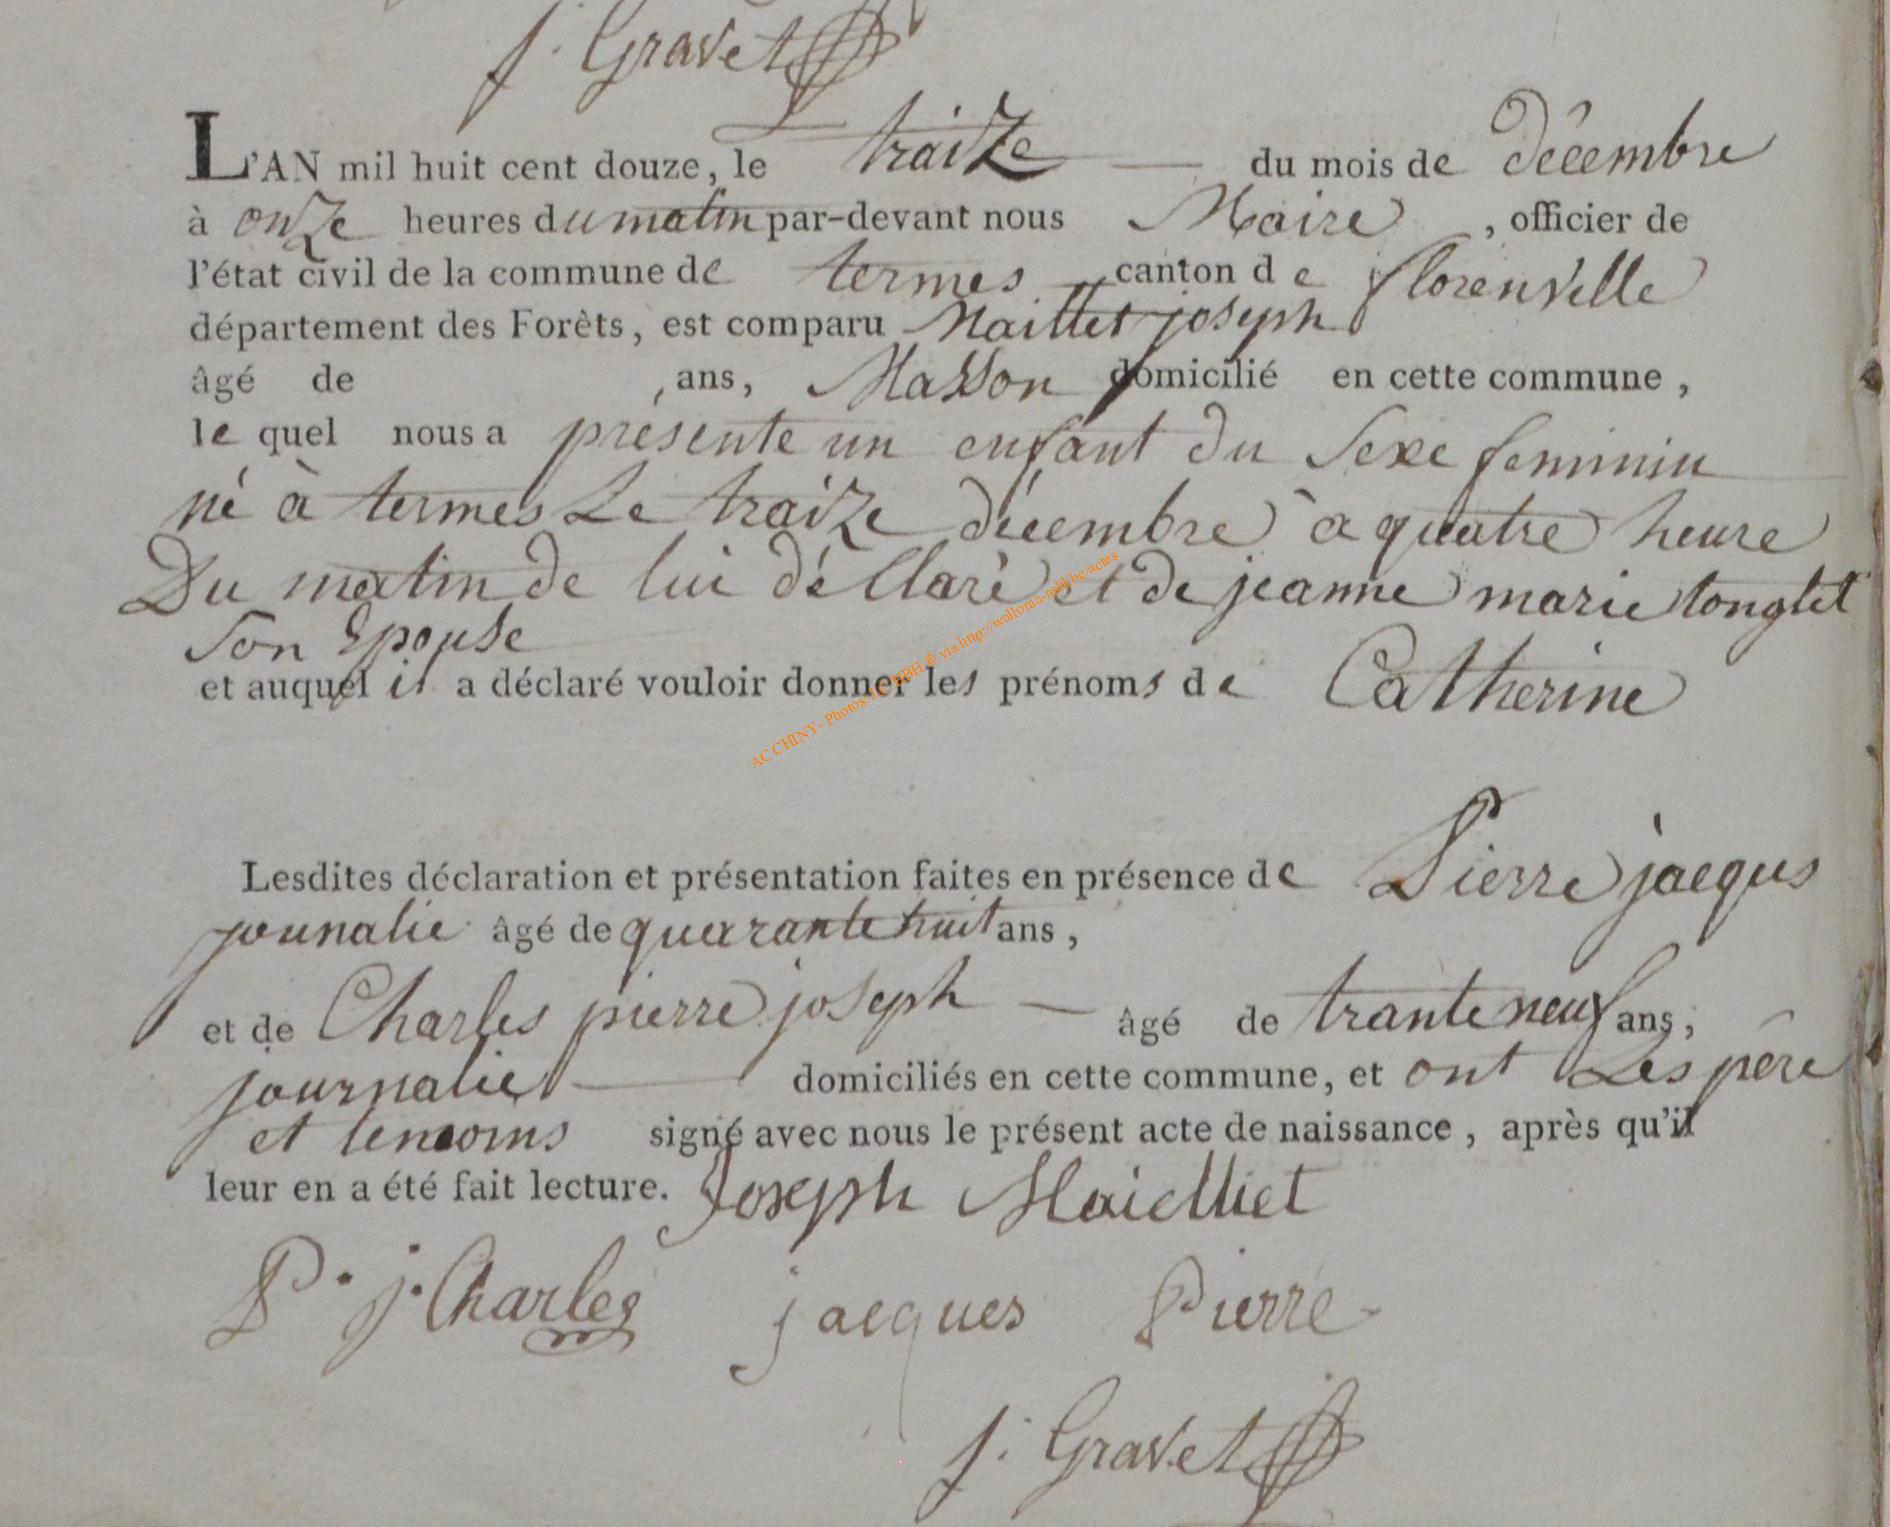 j. Gravet
L'AN mil huit cent douze, le traize du mois de décembre
à onze heures du matin par-devant nous Maire , officier de
l'état civil de la commune de termes canton de florenville
département des Forêts, est comparu Maillet joseph
âgé de , ans, Masson domicilié en cette commune,
le quel nous a présente un enfant du Sexe feminin
né à termes Le traize décembre à quatre heure
Du matin de lui déClaré et de jeanne marie tonglet
Son Epouse
et auquel il a déclaré vouloir donner les prénoms de Catherine
AC CHINY - Photos: via http://walloma-mbl.be/actes
Lesdites déclaration et présentation faites en présence de Pierre jacqus
jounalie âgé de quarante huit ans,
et de Charles pierre joseph âgé de trante neuf ans,
journalie domiciliés en cette commune, et ont Les pére
et temoins signé avec nous le présent acte de naissance, après qu'il
leur en a été fait lecture. Joseph Maielliet
P. j. Charles jacques Pierre
j. Gravet